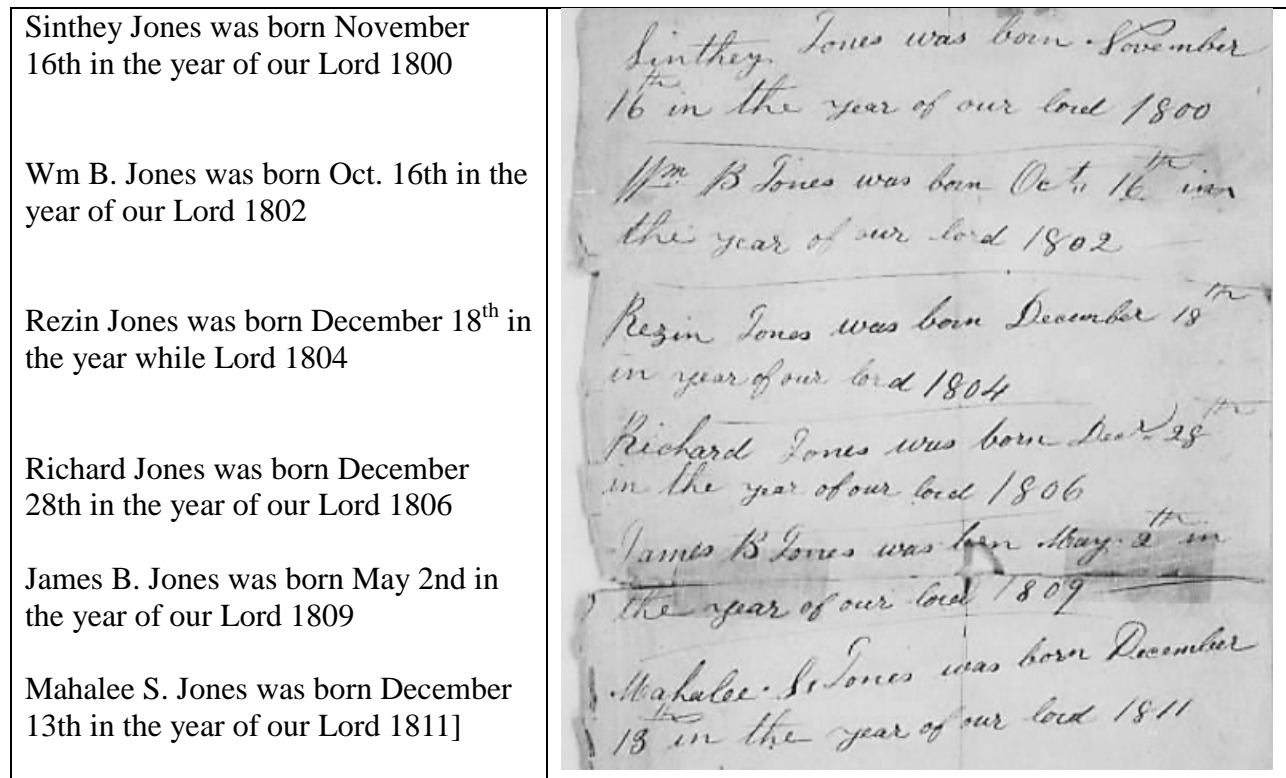 Sinthey Jones was born November
16th in the year of our Lord 1800
Wm B. Jones was born Oct. 16th in the
year of our Lord 1802
Rezin Jones was born December 18th in
the year while Lord 1804
Richard Jones was born December
28th in the year of our Lord 1806
James B. Jones was born May 2nd in
the year of our Lord 1809
Mahalee S. Jones was born December
13th in the year of our Lord 1811]
Sinthey Jones was born November
16th in the year of our lord 1800
Wm B Jones was born Oct. 16th in
the year of our lord 1802
Rezin Jones was born December 18th
in year of our lord 1804
Richard Jones was born Decr 28th
in the year of our lord 1806
James B Jones was born May 2th in
the year of our lord 1809
Mahalee S Jones was born December
13th in the year of our lord 1811